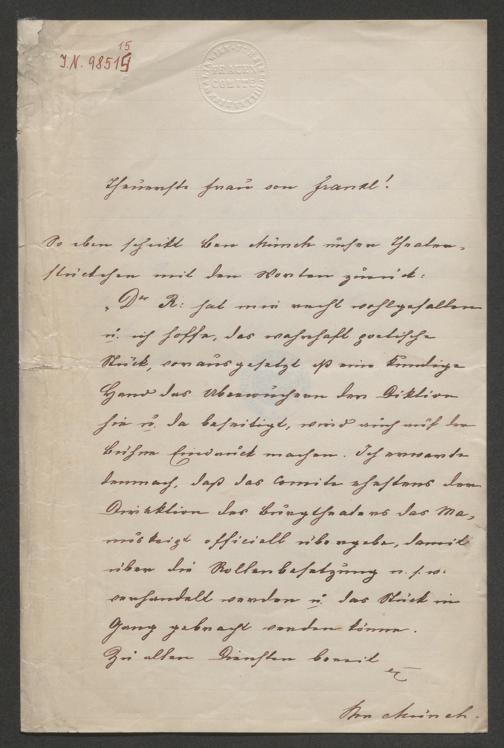 I.N. 98515
15
FRAUEN
COMITÉ
Theuerste Frau von Frankl!
So eben schickt Ben Münch unser Theater-
stückchen mit den Worten zurück:
„Der R: hat mir recht wohlgefallen
u. ich hoffe, das wahrhaft poetische
Stück, vorausgesetzt eine kundige
Hand das Überwuchern der Diktion
hie u. da beseitigt, wird auch auf der
Bühne Eindruck machen. Ich erwarte
demnach, daß das Comite ehestens der
Direktion des Burgtheaters das Ma-
nuskript officiell übergebe, damit
über die Rollenbesetzung u.s.w.
verhandelt werden u. das Stück in
Gang gebracht werden könne.
Zu allen Diensten bereit
Münch.